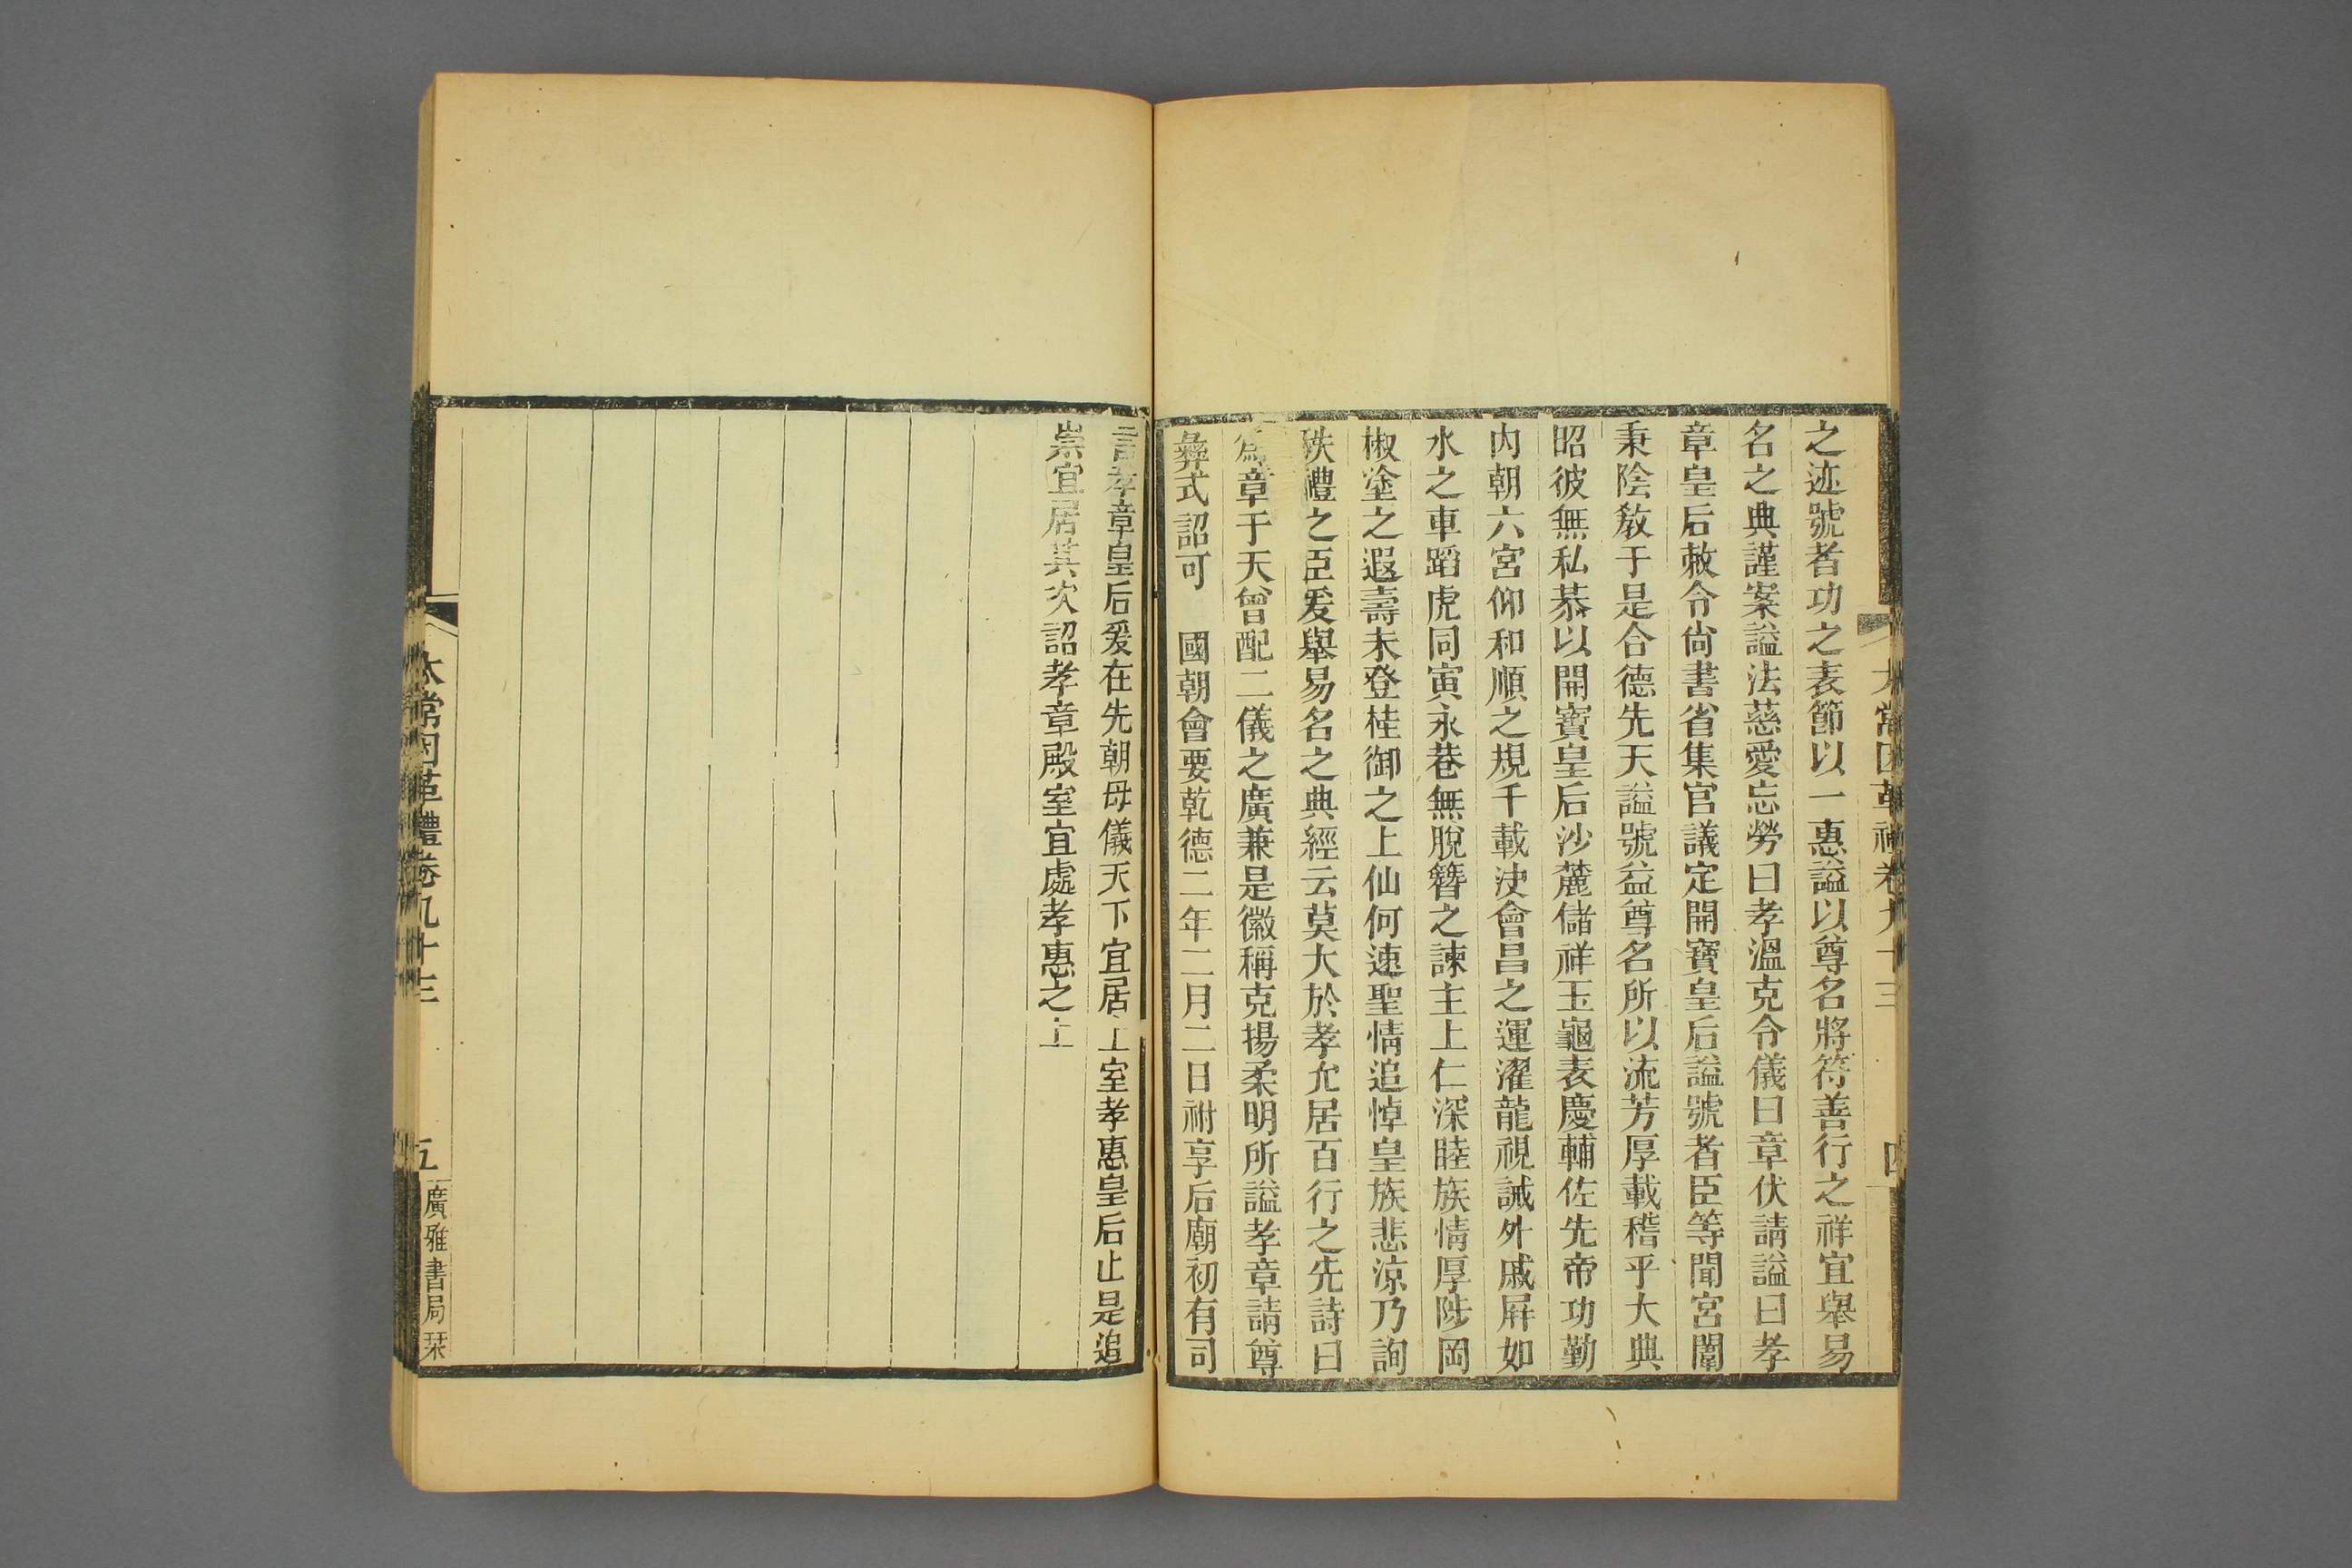 太常因革禮卷九十三 四
之迹號者功之表節以一惠謚以尊名將符善行之祥宜舉易
名之典謹案謚法慈愛忘勞曰孝溫克令儀曰章伏請謚曰孝
章皇后敕令尚書省集官議定開寶皇后謚號者臣等聞宮闈
秉陰敎于是合德先天謚號益尊名所以流芳厚載稽乎大典
昭彼無私恭以開寶皇后沙麓儲祥玉龜表慶輔佐先帝功勤
內朝六宮仰和順之規千載浹會昌之運濯龍視誡外戚屏如
水之車蹈虎同寅永巷無脫簪之諫主上仁深睦族情厚陟岡
椒塗之遐壽未登桂御之上仙何速聖情追悼皇族悲涼乃詢
秩禮之臣爰舉易名之典經云莫大於孝允居百行之先詩曰
爲章于天曾配二儀之廣兼是徽稱克揚柔明所謚孝章請尊
彝式詔可　國朝會要乾德二年二月二日祔享后廟初有司
言孝章皇后爰在先朝母儀天下宜居上室孝惠皇后止是追
崇宜居其次詔孝章殿室宜處孝惠之上
太常因革禮卷九十三 五 廣雅書局栞